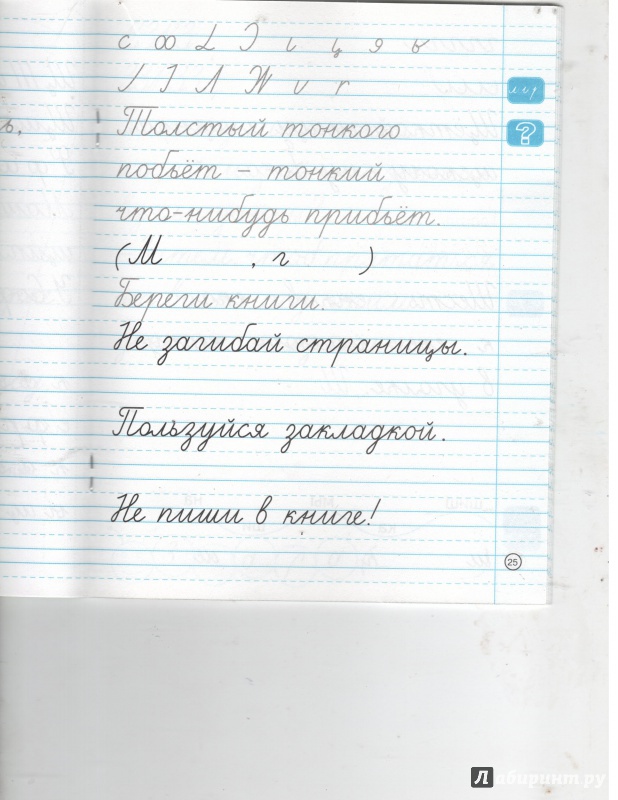 Толстый тонкого
ь.
побьёт – тонкий
что-нибудь прибьёт.
(М , г )
Береги книги.
Не загибай страницы.
Пользуйся закладкой.
Не пиши в книге!
25
Лабиринт.ру